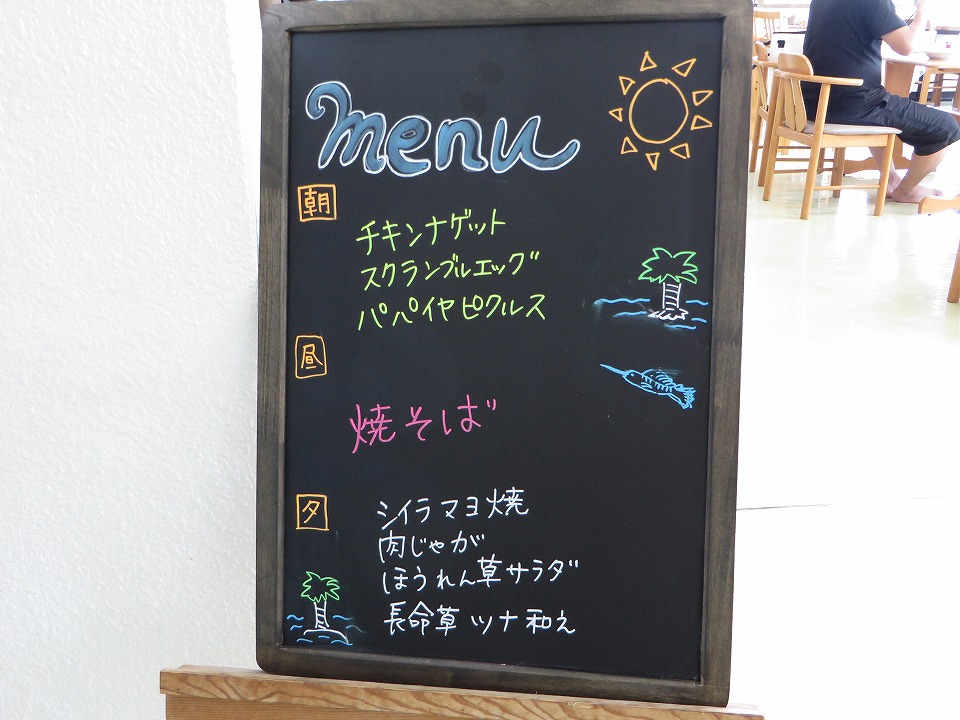 menu
朝
チキンナゲット
スクランブルエッグ
パパイヤピクルス
昼
焼そば
夕
シイラマヨ焼
肉じゃが
ほうれん草サラダ
長命草ツナ和え